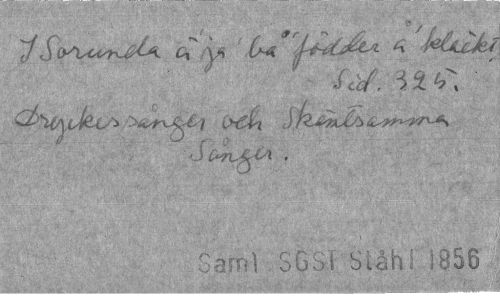 I Sorunda ä' ja' bå' födder å' kläckt,
Sid. 325.
Dryckessånger och Skämtsamma
Sånger.
Saml SGSI Ståhl 1856